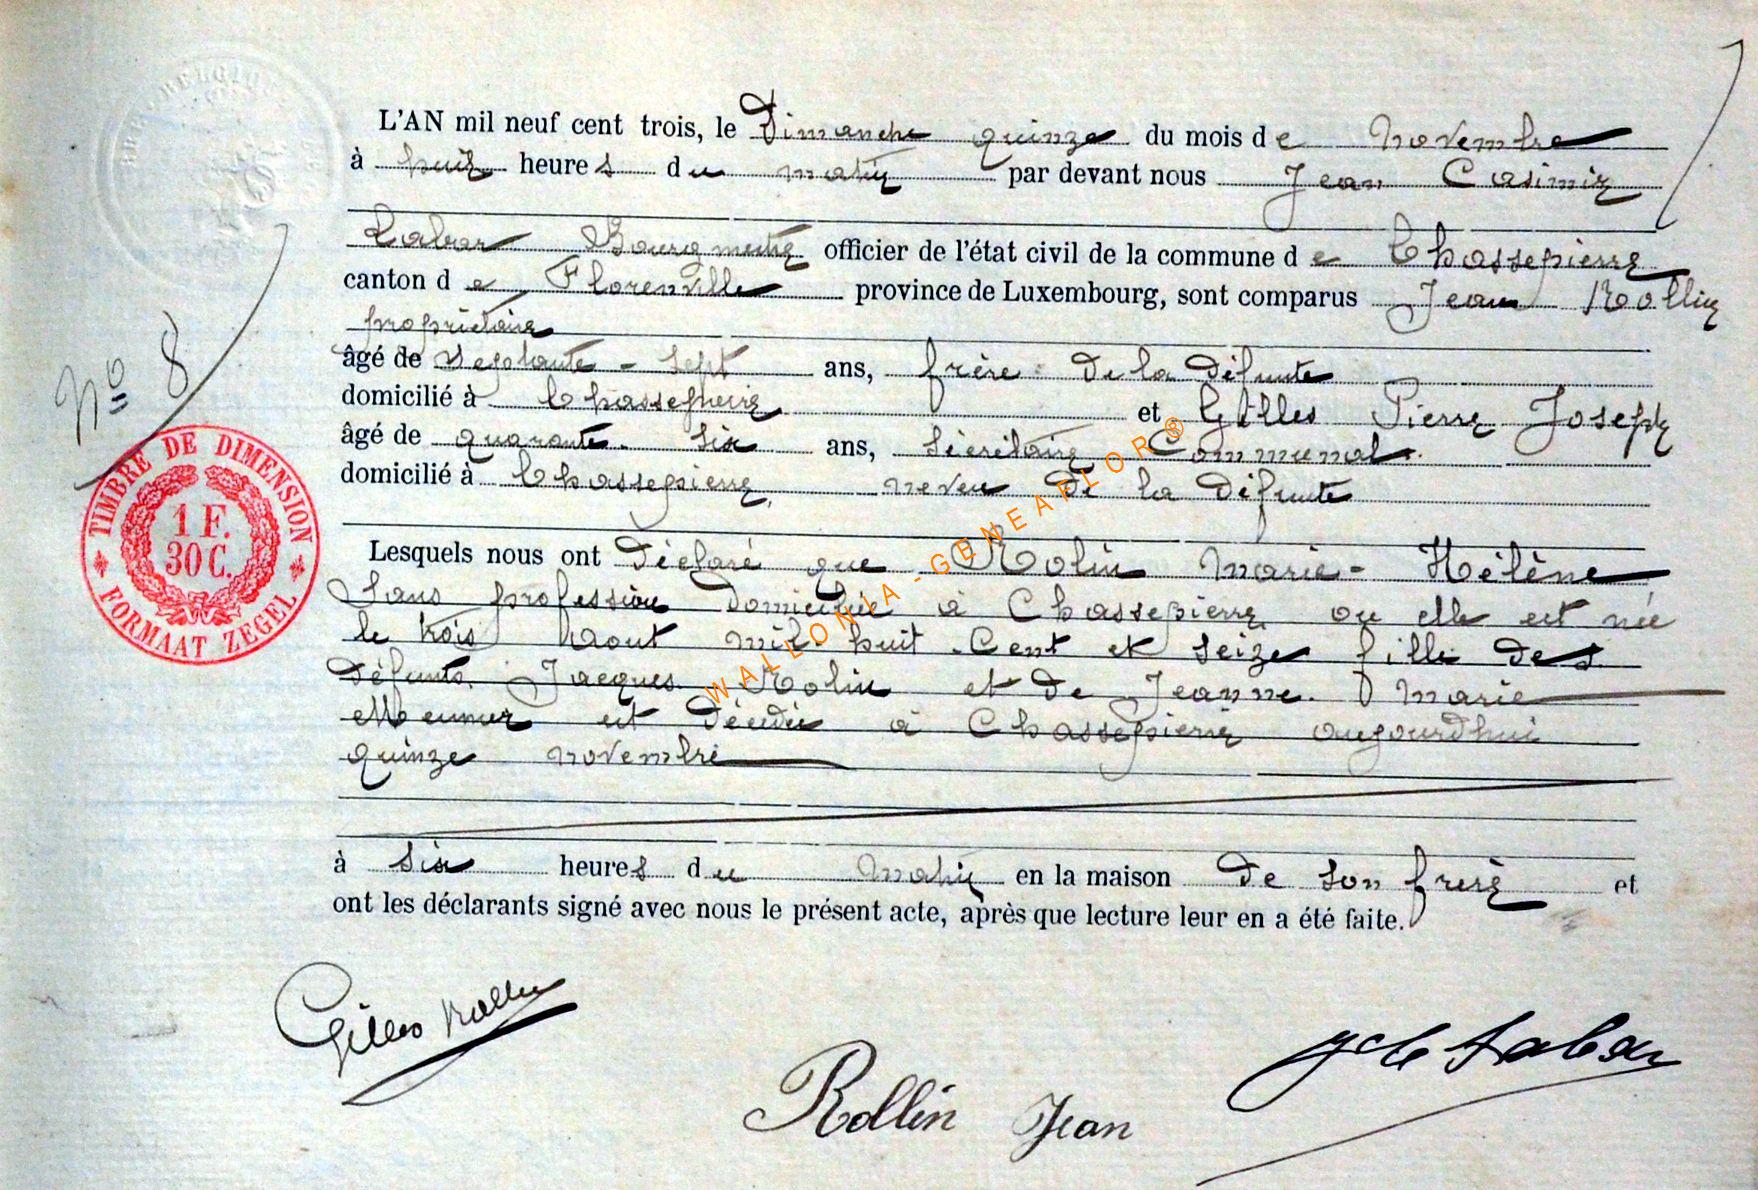 L'AN mil neuf cent trois, le Dimanche quinze du mois de Novembre
à huit heures du matin par devant nous Jean Casimir
Labar Bourgmestre officier de l'état civil de la commune de Chassepierre
canton de Florenville province de Luxembourg, sont comparus Jean Rollin
propriétaire
âgé de septante-sept ans, frère de la défunte
domicilié à Chassepierre et Gilles Pierre Joseph
âgé de quarante-six ans, sécrétaire Communal
domicilié à Chassepierre, neveu de la défunte
Lesquels nous ont déclaré que Rolin Marie-Hélène
sans profession domiciliée à Chassepierre ou elle est née
le trois aout mil huit Cent et seize fille des
défunts Jacques Rolin et de Jeanne Marie
est décédée à Chassepierre aujourdhui
quinze novembre
à six heures du matin en la maison de son frère et
ont les déclarants signé avec nous le présent acte, après que lecture leur en a été faite.
No 8
TIMBRE DE DIMENSION
1 F.
30 C.
FORMAAT ZEGEL
WALLONIA-GENEAFLOR®
Gilles Rollin
Rollin Jean
Labar